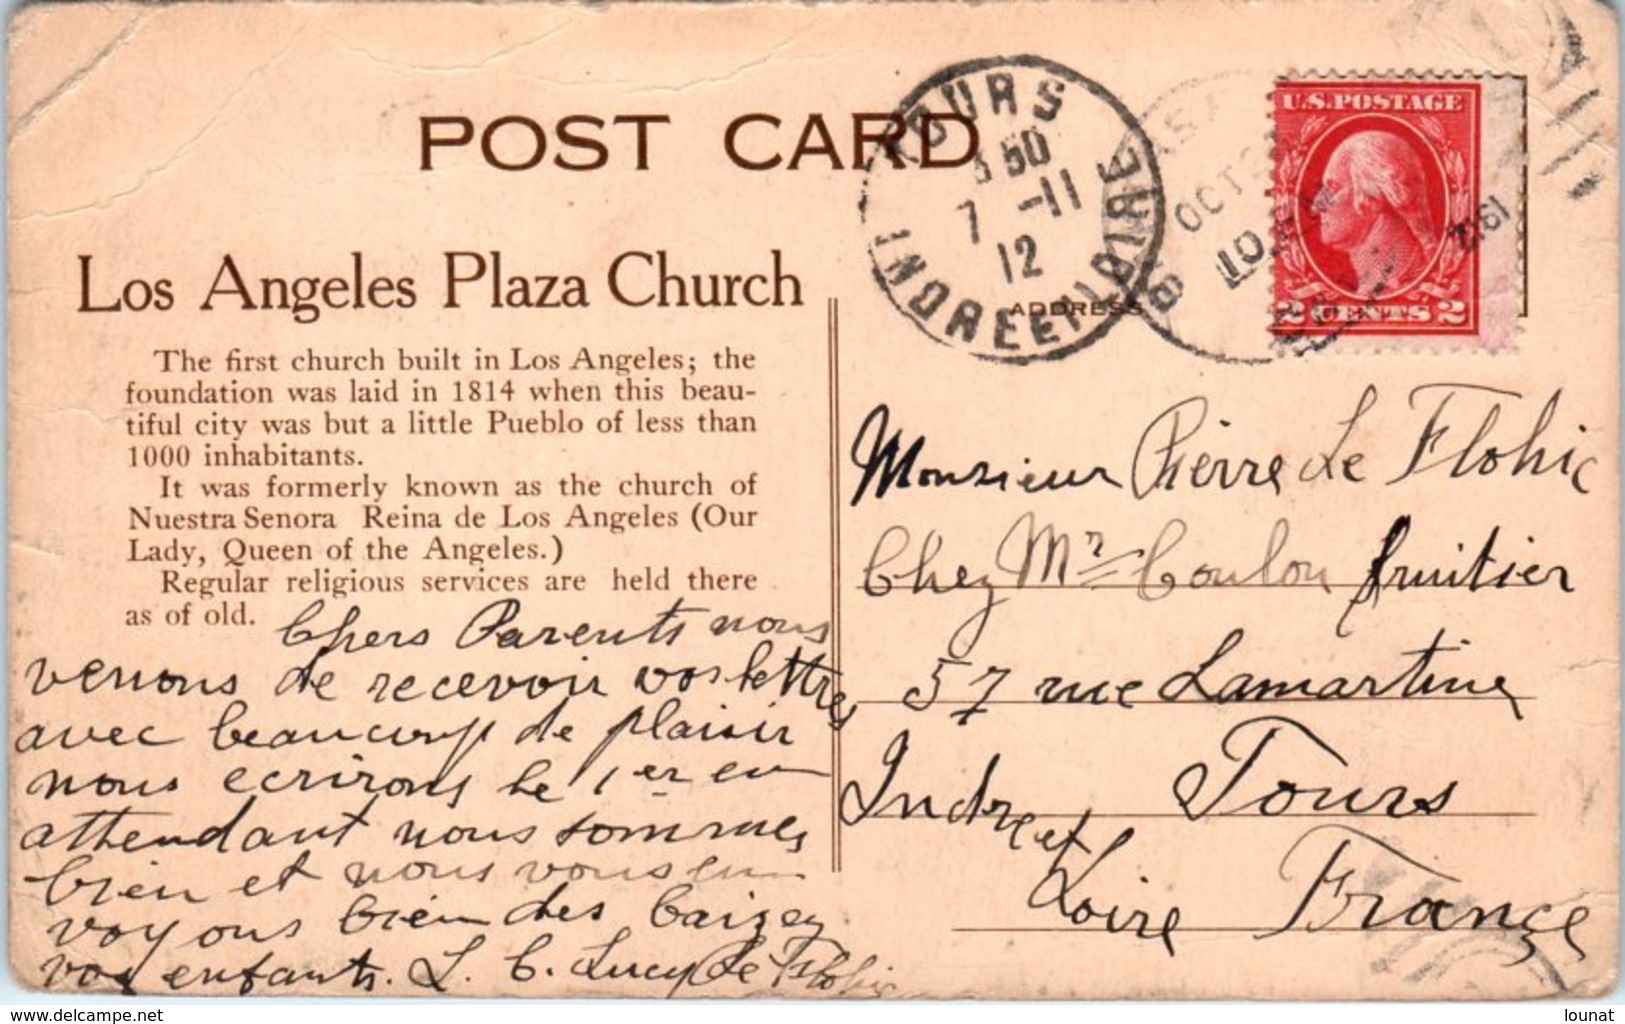 POST CARD
TOURS
3 50
7 -11
12
INDRE ET LOIRE
OCT 2
10
1912
U.S.POSTAGE
2 CENTS 2
ADDRESS
Los Angeles Plaza Church
The first church built in Los Angeles; the
foundation was laid in 1814 when this beau-
tiful city was but a little Pueblo of less than
1000 inhabitants.
It was formerly known as the church of
Nuestra Senora Reina de Los Angeles (Our
Lady, Queen of the Angeles.)
Regular religious services are held there
as of old.
Chers Parents nous
venons de recevoir vos lettres
avec beaucoup de plaisir
nous ecrirons le 1er en
attendant nous sommes
bien et nous vous en
voyons bien des baizey
vos enfants. L. C. Lucy Le Flohic
Monsieur Pierre Le Flohic
Chez Mr Coulon fruitier
57 rue Lamartine
Tours
Indre et
Loire France
www.delcampe.net
lounat